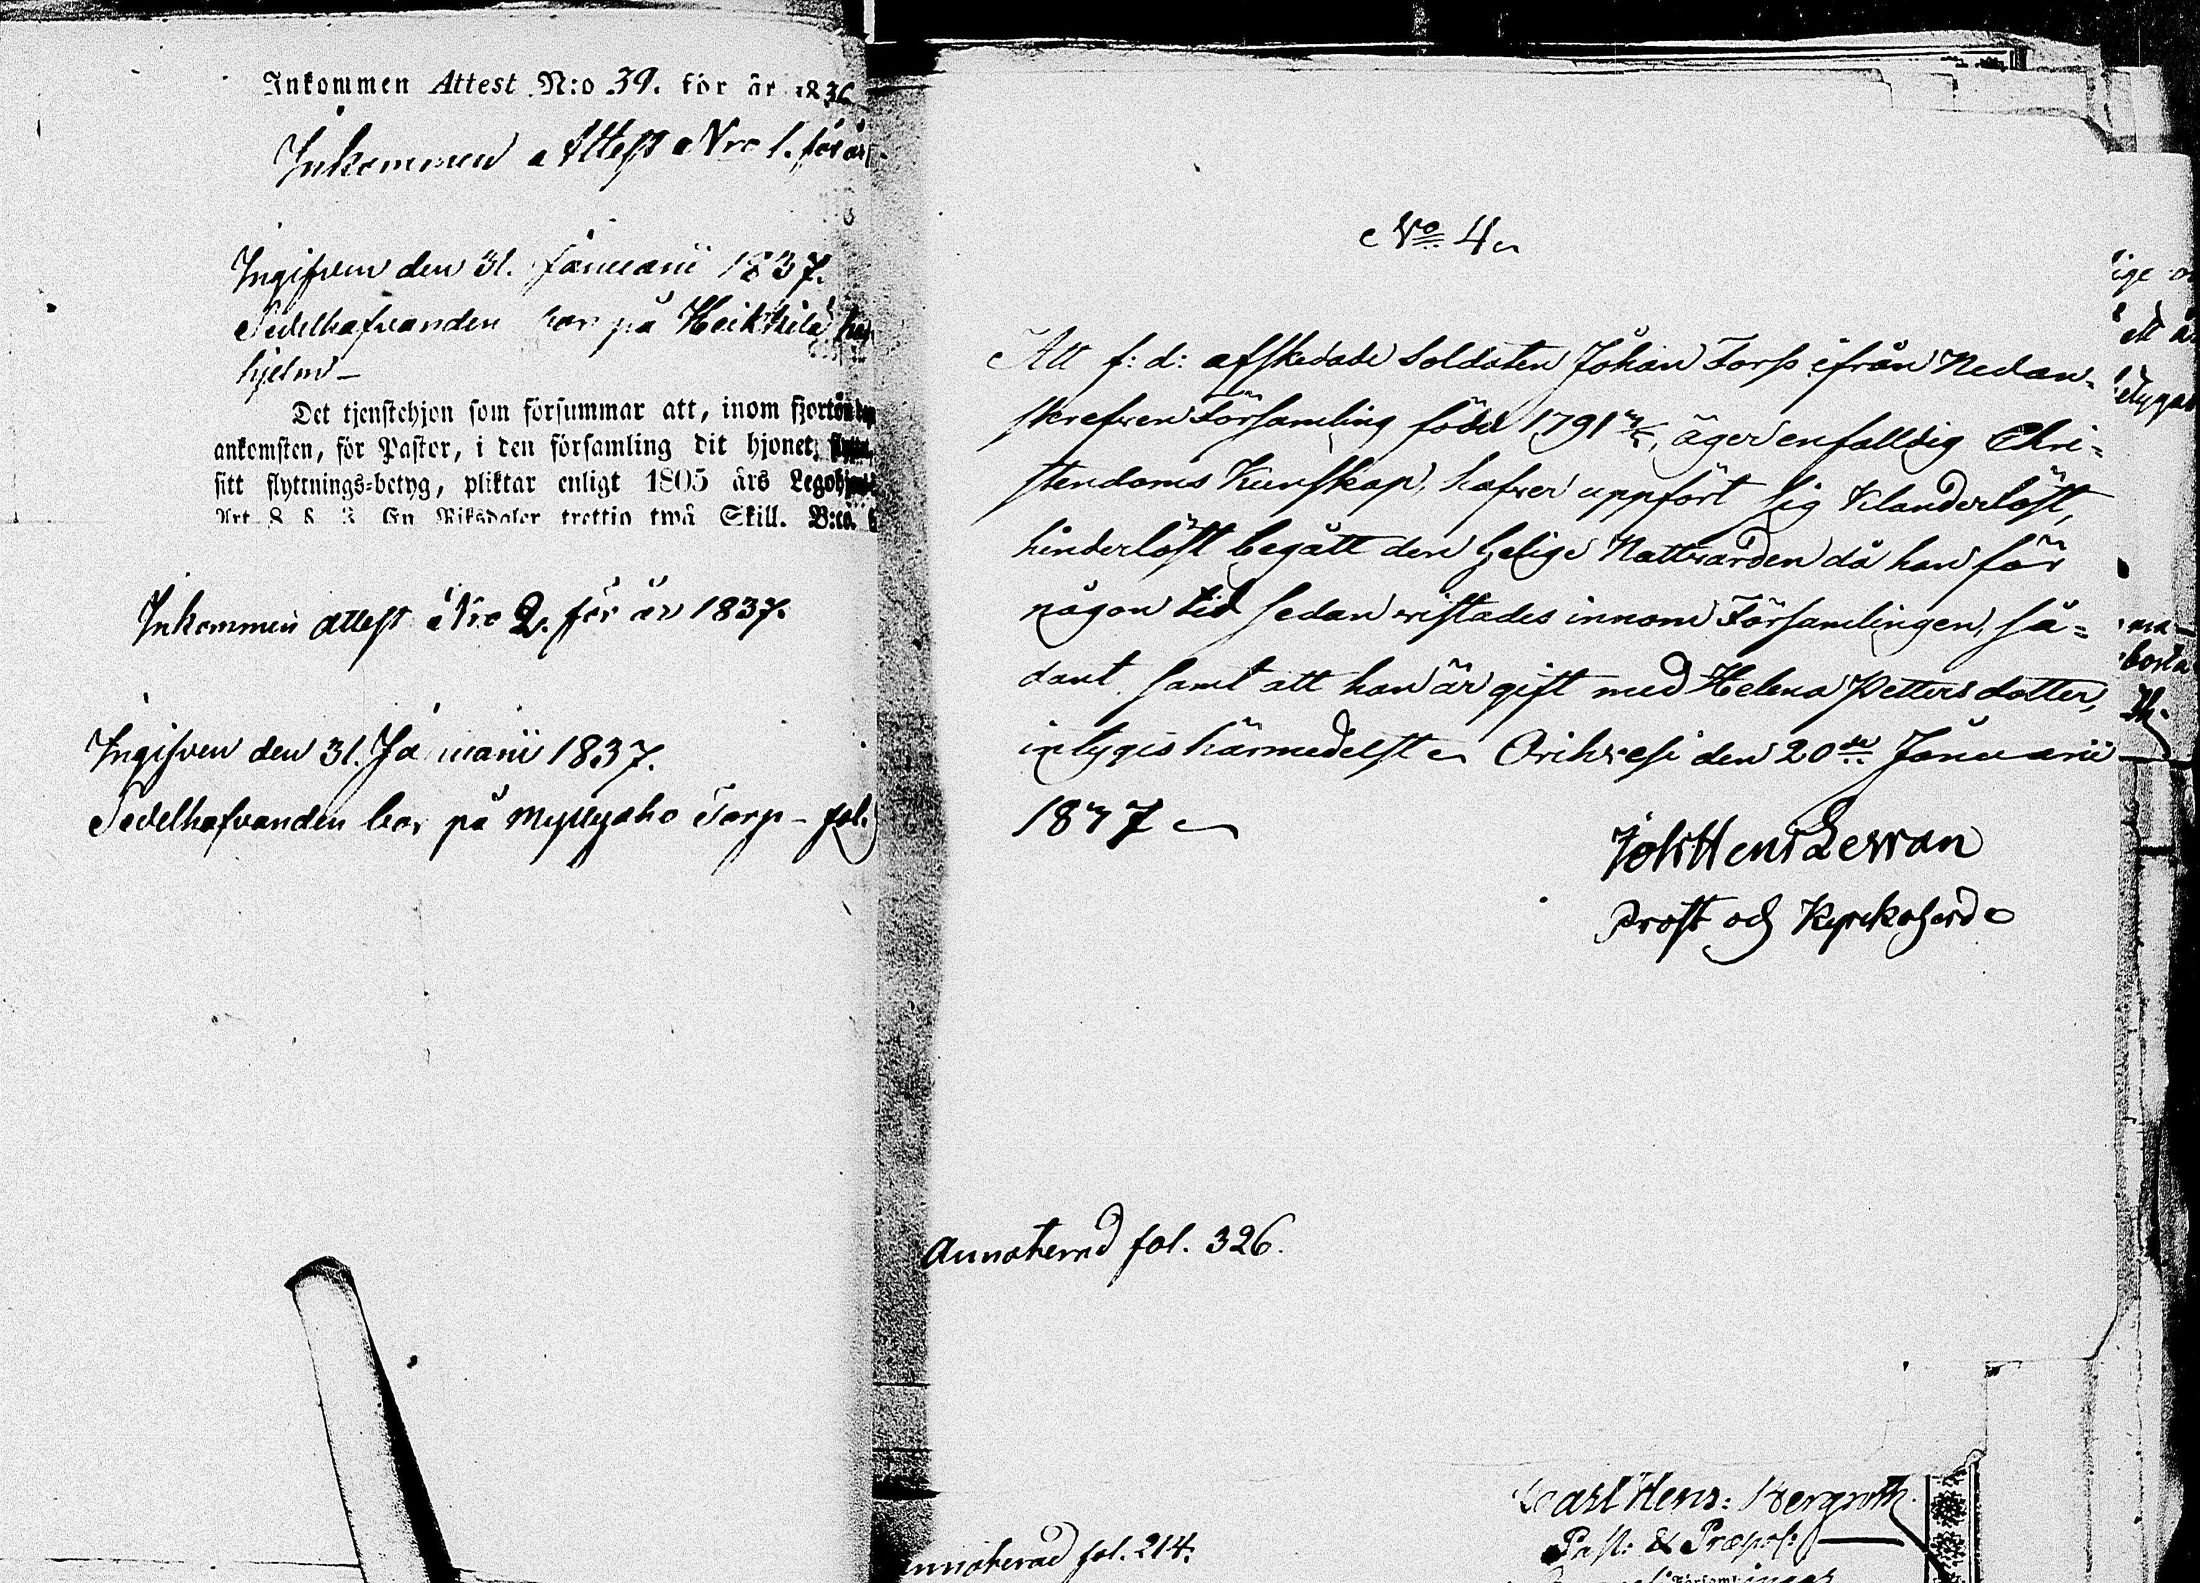 Inkommen Attest N:o 39. för år 1836
Inkommen Attest Nro 1. för år
Ingifven den 31. Januarii 1837.
Sedelhafvanden bor på Heikkilä
hjelm –
Det tjenstehjon som försummar att, inom fjorton
ankomsten, för Pastor, i den församling dit hjonet
sitt flyttnings-betyg, pliktar enligt 1805 års
Art. 8 § 3 En Riksdaler trettio twå Skill. B:co.
Inkommen attest Nro 2. för år 1837.
Ingifven den 31. Januarii 1837.
Sedelhafvanden bor på Myllyaho Torp – fol.
No 4
Att f: d: afskedade Soldaten Johan Forss ifrån Nedan-
skrefven Församling född 1791, äger enfalldig Chri-
stendoms Kunskap, hafver uppfört sig klanderlöst,
hinderlöst begått den Helige Nattvarden då han för
någon tid sedan vistades innom Församlingen, så-
dant samt att han är gift med Helena Pettersdotter,
intygis härmedelst Orihvesi den 20de Januarii
1837
Joh Henr Lewan
Prost och Kyrkoherde
Annoterad fol. 326.
Annoterad fol. 214.
Carl Henr: Bergroth.
Past: & Præpos: